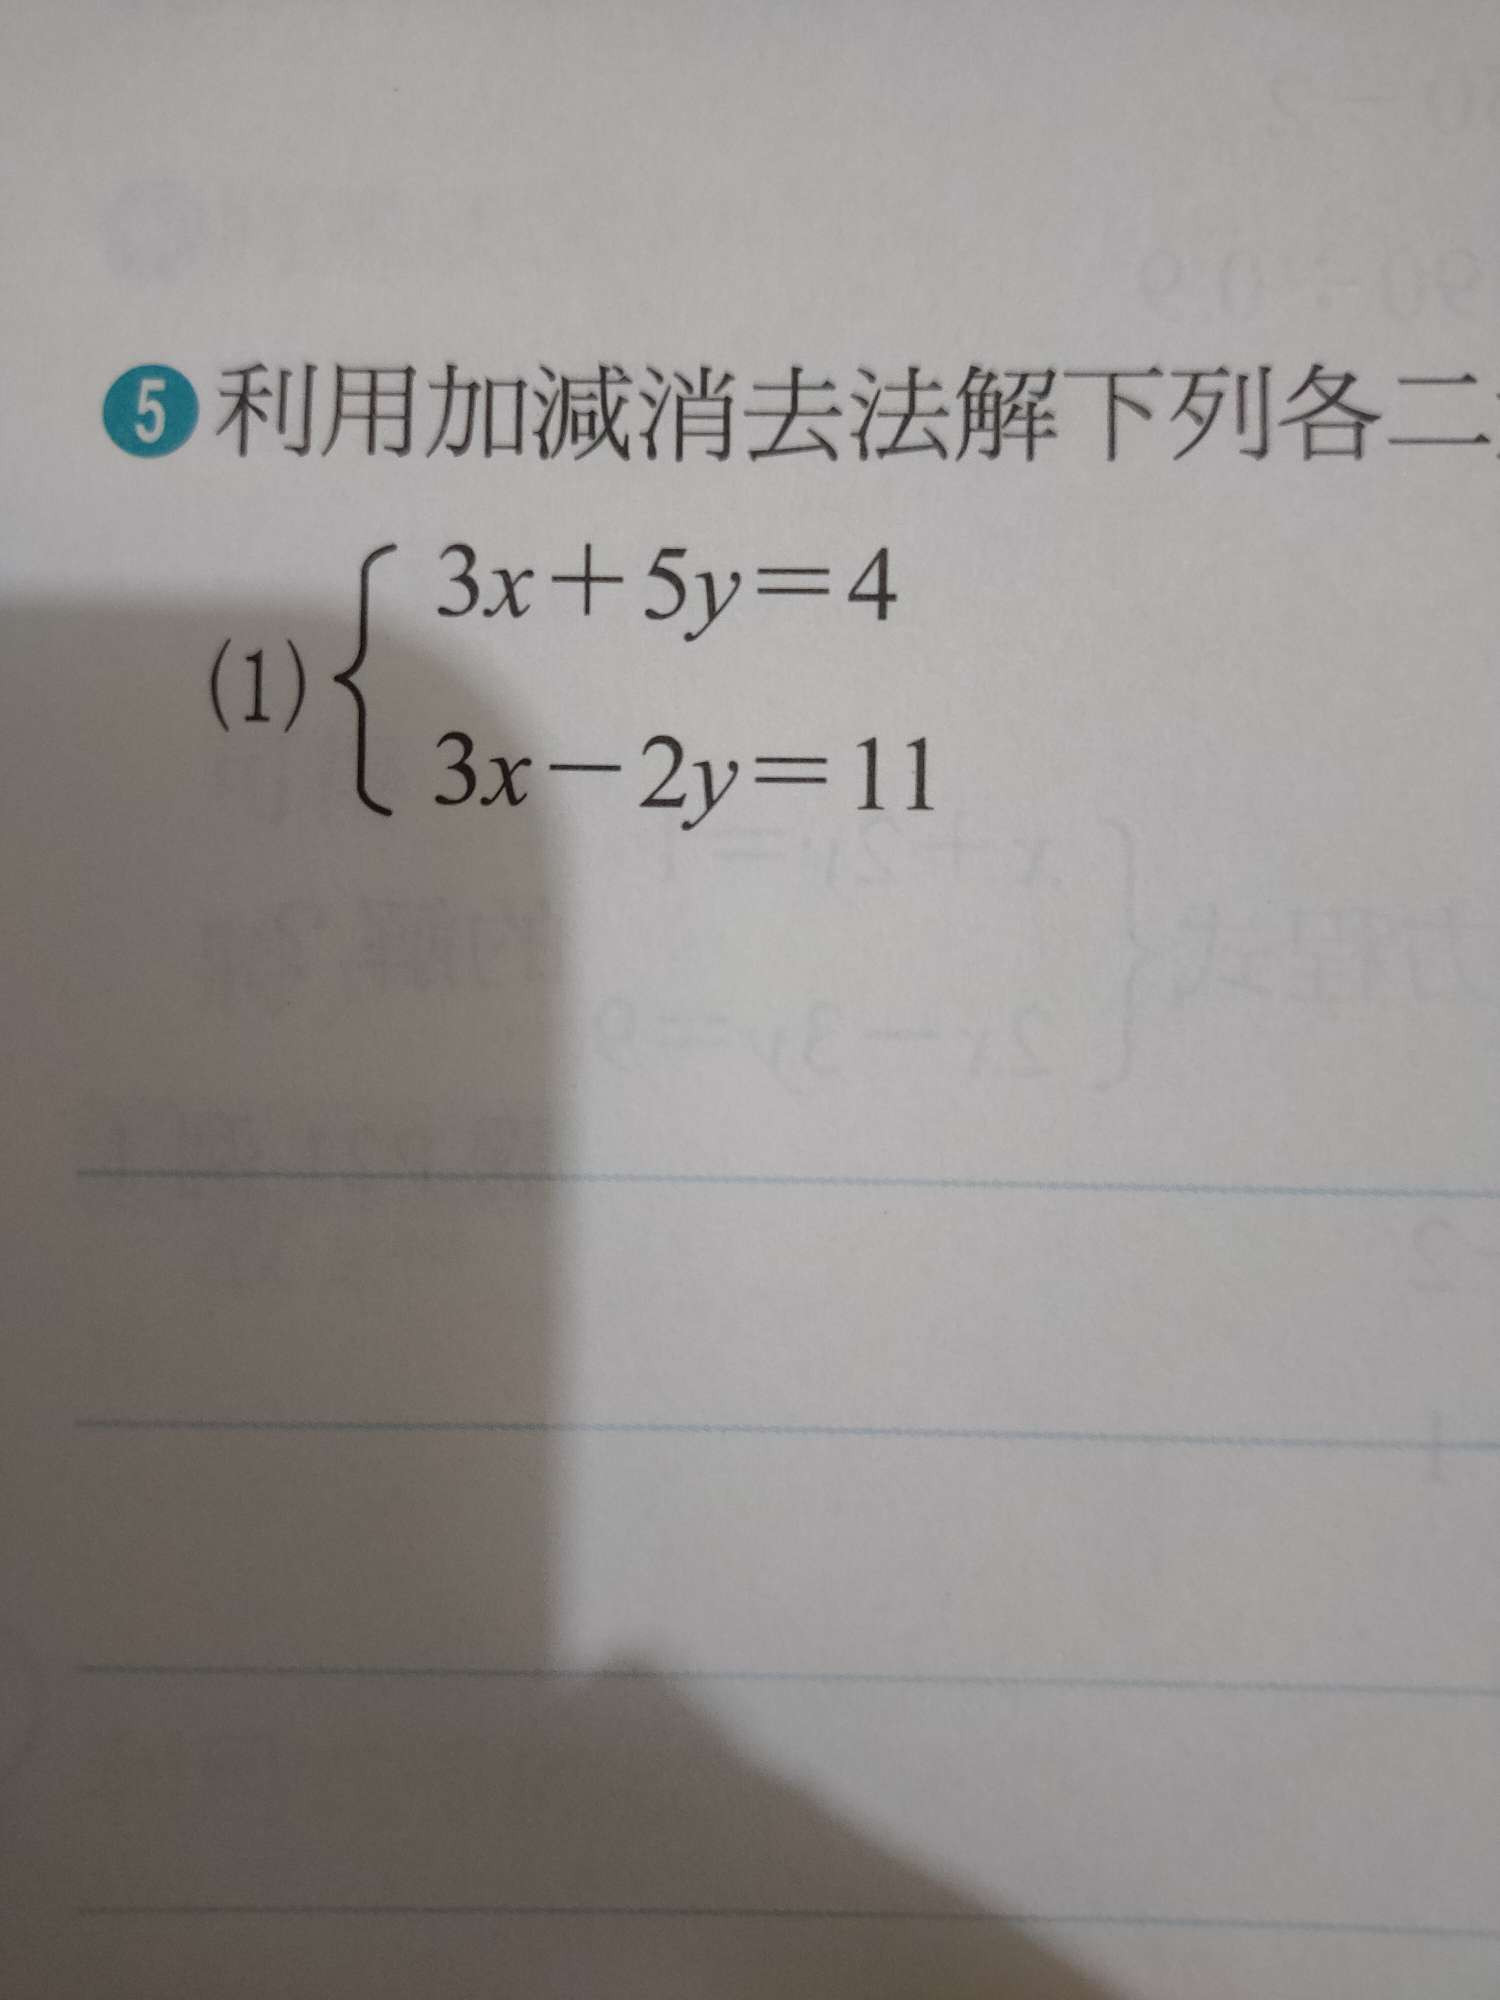 5 利用加減消去法解下列各二
(1) { 3x+5y=4
3x-2y=11